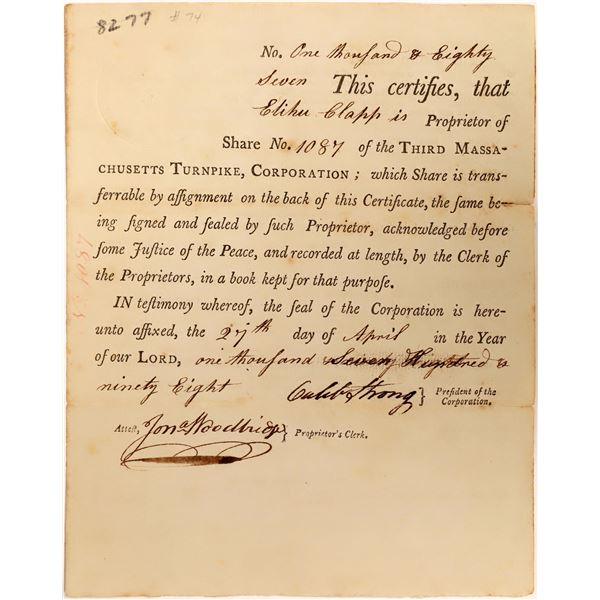 8277 #74
No. One thousand & Eighty
Seven This certifies, that
Elihu Clapp is Proprietor of
Share No. 1087 of the THIRD MASSA-
CHUSETTS TURNPIKE, CORPORATION; which Share is trans-
ferrable by aſſignment on the back of this Certificate, the ſame be-
ing ſigned and ſealed by ſuch Proprietor, acknowledged before
ſome Juſtice of the Peace, and recorded at length, by the Clerk of
the Proprietors, in a book kept for that purpoſe.
IN teſtimony whereof, the ſeal of the Corporation is here-
unto affixed, the 27th day of April in the Year
of our LORD, one thousand Seven Hundred &
ninety Eight Caleb Strong } Preſident of the
Corporation.
Atteſt, Jona Woodbridge } Proprietor's Clerk.
1087